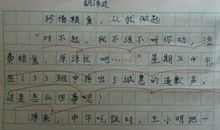 胡沛廷
珍惜粮食，从我做起
“对不起，我不该不听你劝，浪
费粮食，原谅我吧……”星期二中午
五（3）班中传出了诚恳的道歉声，
这是怎么回事呢？
原来，中午吃饭时，王小明把一